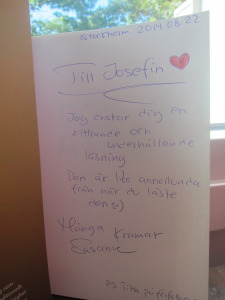 Stockholm 2014-08-22
Till Josefin
Jag önskar dig en
och
underhållande
läsning.
Den är lite annorlunda
från när du läste
den :)
Många Kramar